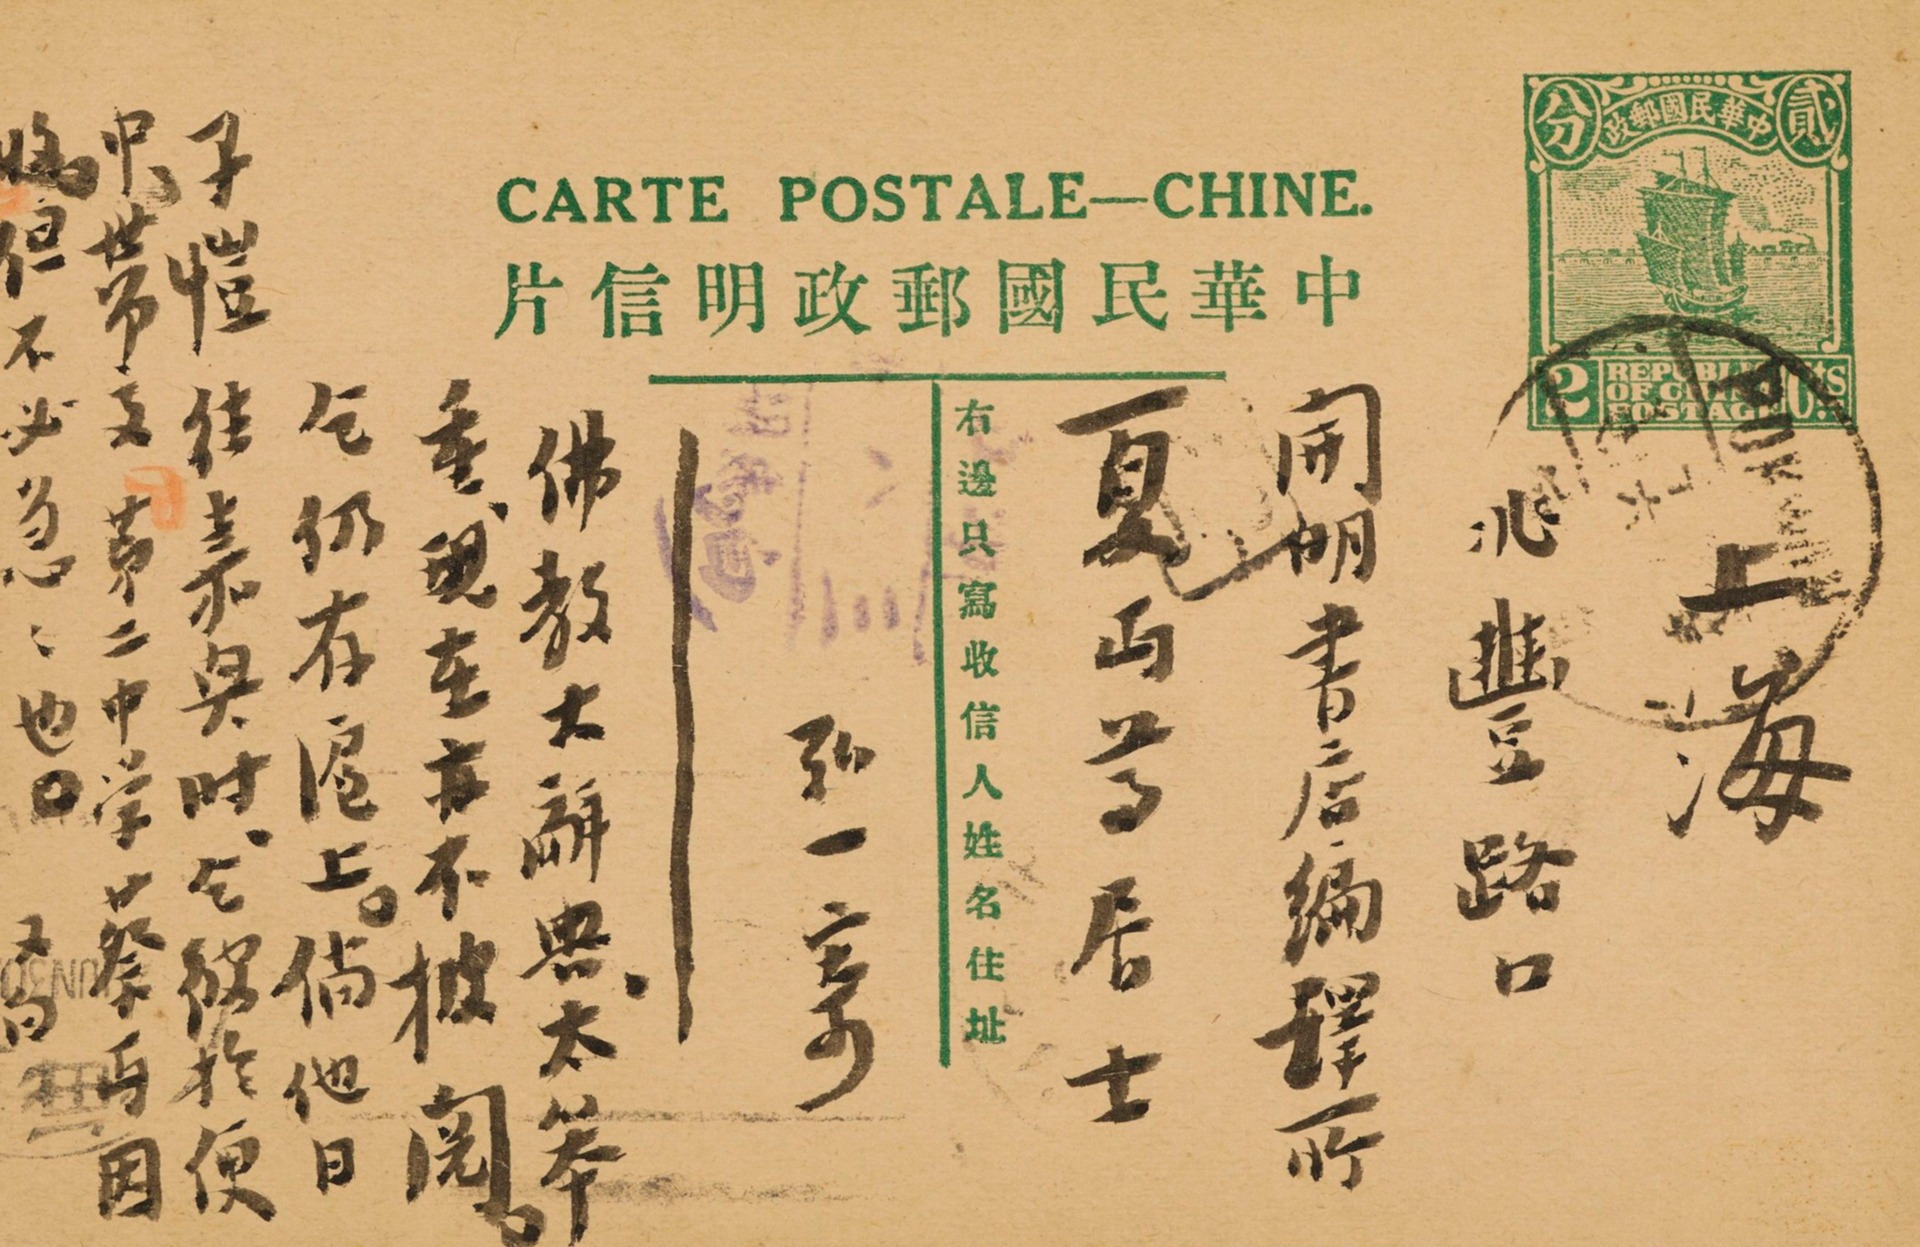 CARTE POSTALE—CHINE.
中華民國郵政明信片
貳分
中華民國郵政
2 REPUBLIC cts
OF CHINA
POSTAGE
上海
兆豐路口
開明書店編譯所
夏丏尊居士
右邊只寫收信人姓名住址
弘一寄
佛教大辭典、太笨
重、現在亦不披閱。
乞仍存滬上。倘他日
子愷往嘉興時、乞彼於便
中、世帶交第二中学蔡丏因
但不必急急也。
又白